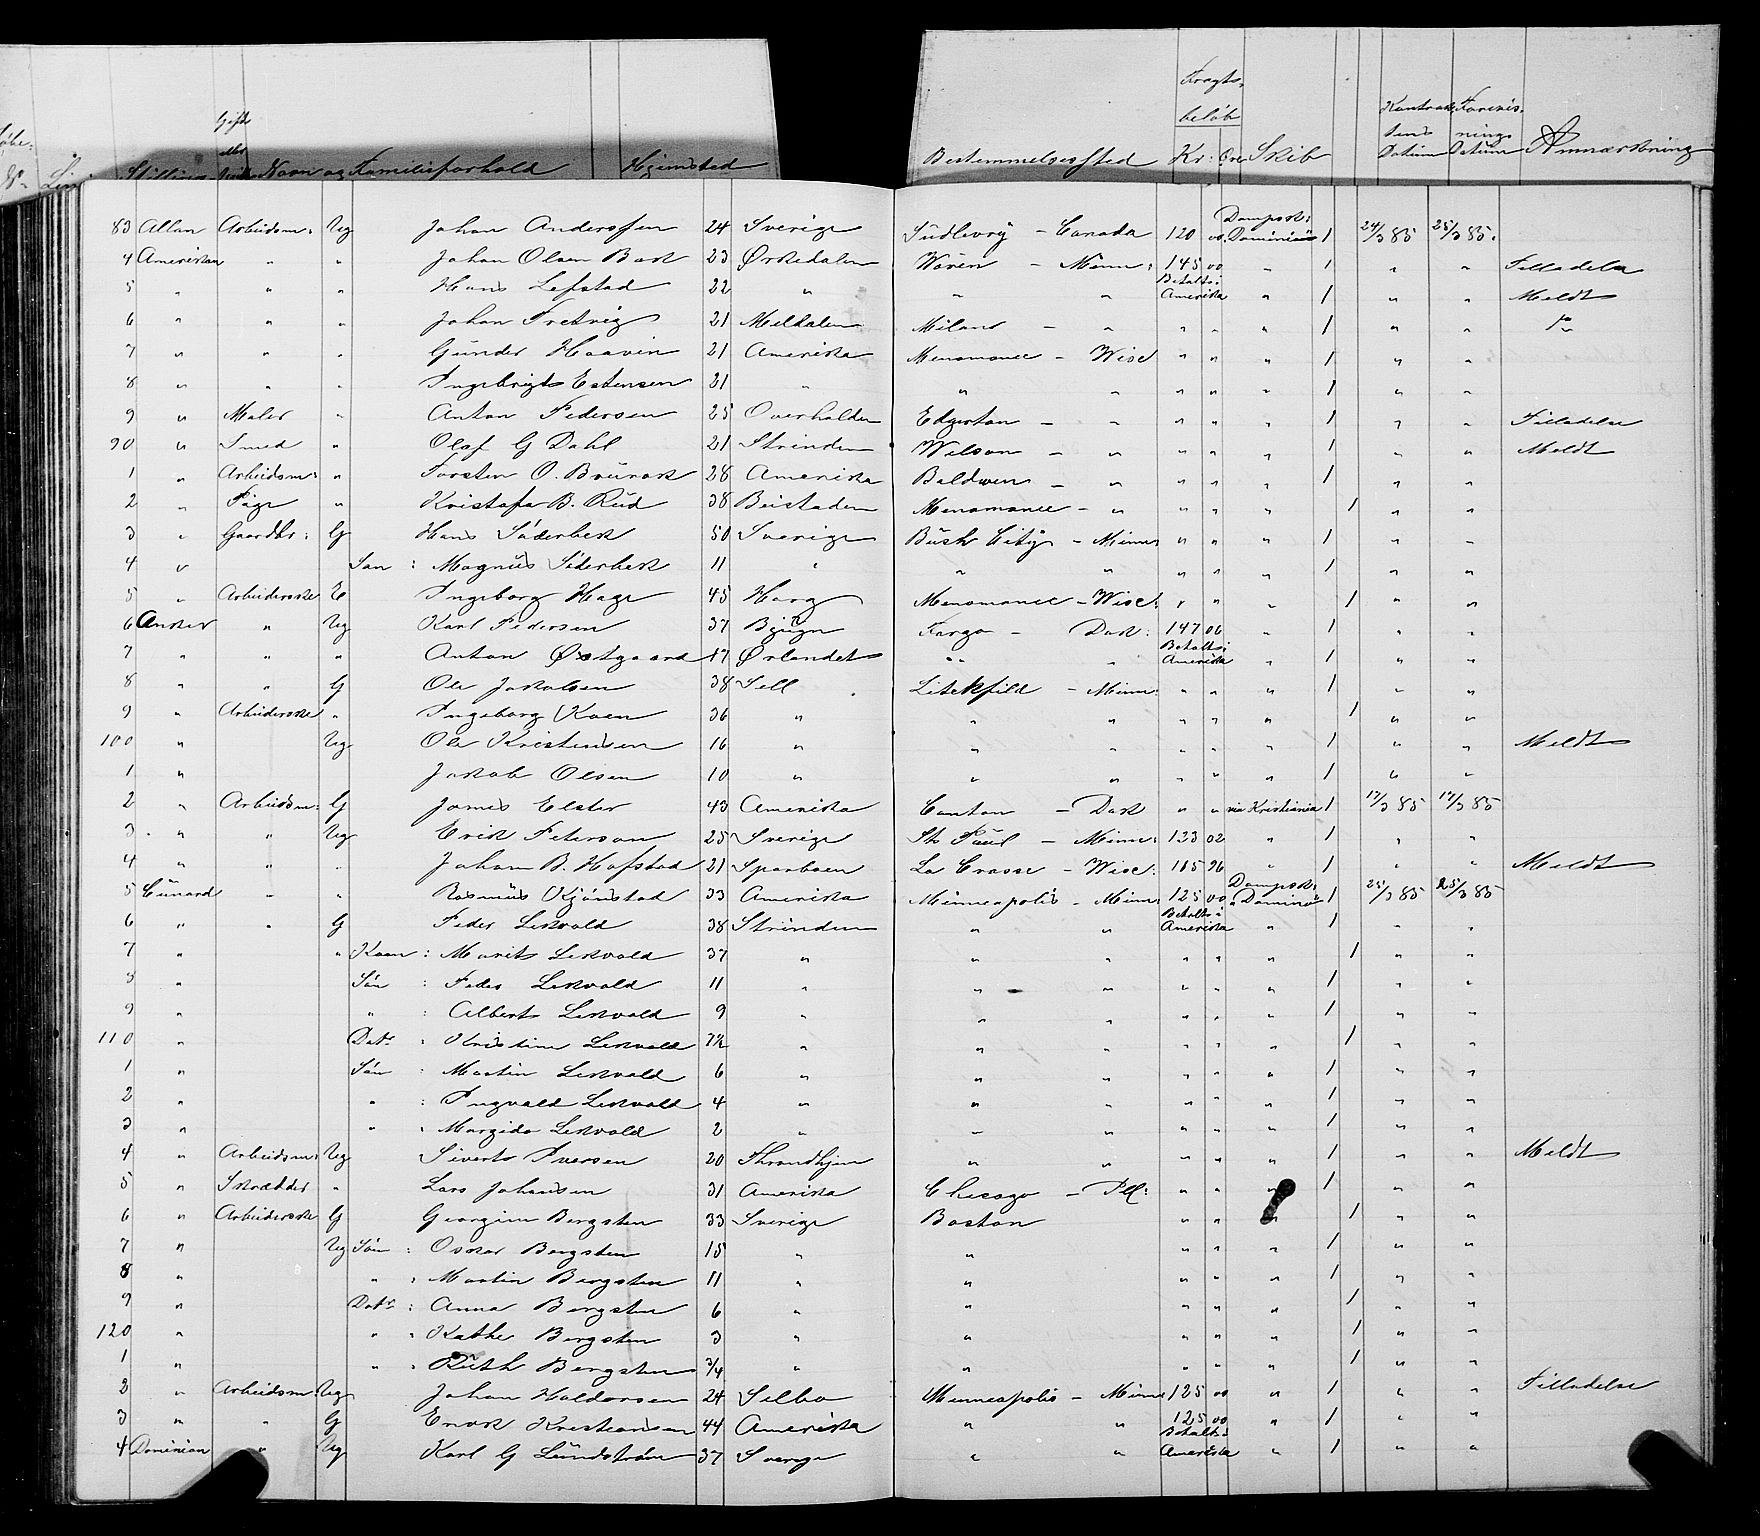 Gifte eller Navn og Familieforhold Hjemsted Bestemmelsessted Fragtbeløb Kr: Øre Skib Kontraktens Datum Forevisnings Datum Anmærkning
83 Allan Arbeidsm: Ug Johan Anderssen 24 Sverige Sudbury - Canada 120 00 Dampsk: Dominion 1 24/3 85 25/3 85.
4 Amerikan " " Johan Olsen Bark 23 Ørkedalen Waren - Minn: 145 00 " 1 " " Tilladelse
5 " " " Hans Lefstad 22 " " " Betalt i Amerika " 1 " " Meldt
6 " " " Johan Fretvig 21 Meldalen Milano - " " " " 1 " "
7 " " " Gunder Haavin 21 Amerika Menomonee - Wisc " " " 1 " "
8 " " " Ingebrigt Estensen 21 " " " " " " 1 " "
9 " Maler " Anton Pedersen 25 Overhalden Edgerton - " " " " 1 " " Tilladelse
90 " Smed " Olaf G Dahl 21 Strinden Wilson - " " " " 1 " " Meldt
1 " Arbeidsm: " Torsten O. Brurok 28 Amerika Baldwin - " " " " 1 " "
2 " Pige " Kristofa B. Rud 38 Beistaden Menomonee - " " " " 1 " "
3 " Gaardbr: G Hans Söderberk 50 Sverige Bush City - Minn " " " 1 " "
4 " Søn : Magnus Söderberk 11 " " " " " " 1 " "
5 " Arbeiderske E Ingeborg Hage 45 Harg Menomonee - Wisc: " " " 1 " "
6 Anker " Ug Karl Pedersen 37 Bjugn Fargo - Dak: 147 06 " 1 " "
7 " " " Anton Østgaard 17 Ørlandet " " " Betalt i Amerika " 1 " "
8 " " G Ole Jakobsen 38 Sell Litchfild - Minn: " " " 1 " "
9 " Arbeiderske " Ingeborg Koen 36 " " " " " " 1 " "
100 " Ug Ole Kristensen 16 " " " " " " 1 " " Meldt
1 " Jakob Olsen 10 " " " " " " 1 " "
2 " Arbeidsm: G James Elster 43 Amerika Canton - Dak " " via Kristiania 1 17/3 85 17/3 85
3 " " Ug Erik Peterson 25 Sverige St Paul - Minn: 133 02 " 1 " "
4 " " " Johan B. Hofstad 21 Sparboen La Crosse - Wisc: 115 96 " 1 " " Meldt
5 Cunard " " Rasmus Kjönstad 33 Amerika Minneapolis - Minn: 125 00 Dampsk: Domino 1 25/3 85 25/3 85
6 " " G Peder Lekvold 38 Strinden " " Betalt i Amerika " 1 " "
7 " " Kone : Marit Lekvold 37 " " " " " " 1 " "
8 " Søn : Peder Lekvold 11 " " " " " " 1 " "
9 " " : Albert Lekvold 9 " " " " " " 1 " "
110 " Datr : Kristine Lekvold 7½ " " " " " " 1 " "
1 " Søn : Martin Lekvold 6 " " " " " " 1 " "
2 " " : Ingvald Lekvold 4 " " " " " " 1 " "
3 " " : Margido Lekvold 2 " " " " " " 1 " "
4 " Arbeidsm: Ug Sivert Iversen 20 Throndhjem " " " " " 1 " " Meldt
5 " Skrædder " Lars Johansen 31 Amerika Chicago - Ill: " " " 1 " "
6 " Arbeiderske G Georgine Bergsten 33 Sverige Boston " " " 1 " "
7 " Ug Søn : Oskar Bergsten 15 " " " " " 1 " "
8 " " : Martin Bergsten 11 " " " " " 1 " "
9 " Datr : Anna Bergsten 6 " " " " " 1 " "
120 " " : Kathe Bergsten 3 " " " " " 1 " "
1 " " : Ruth Bergsten 3/4 " " " " " 1 " "
2 " Arbeidsm: Ug Johan Haldorsen 24 Selbo Minneapolis - Minn 125 00 " 1 " " Tilladelse
3 " " G Enok Kristiansen 44 Amerika " " 125 00 " 1 " "
4 Dominion " Ug Karl G Lundström 37 Sverige " " Betalt i Amerika " 1 " "